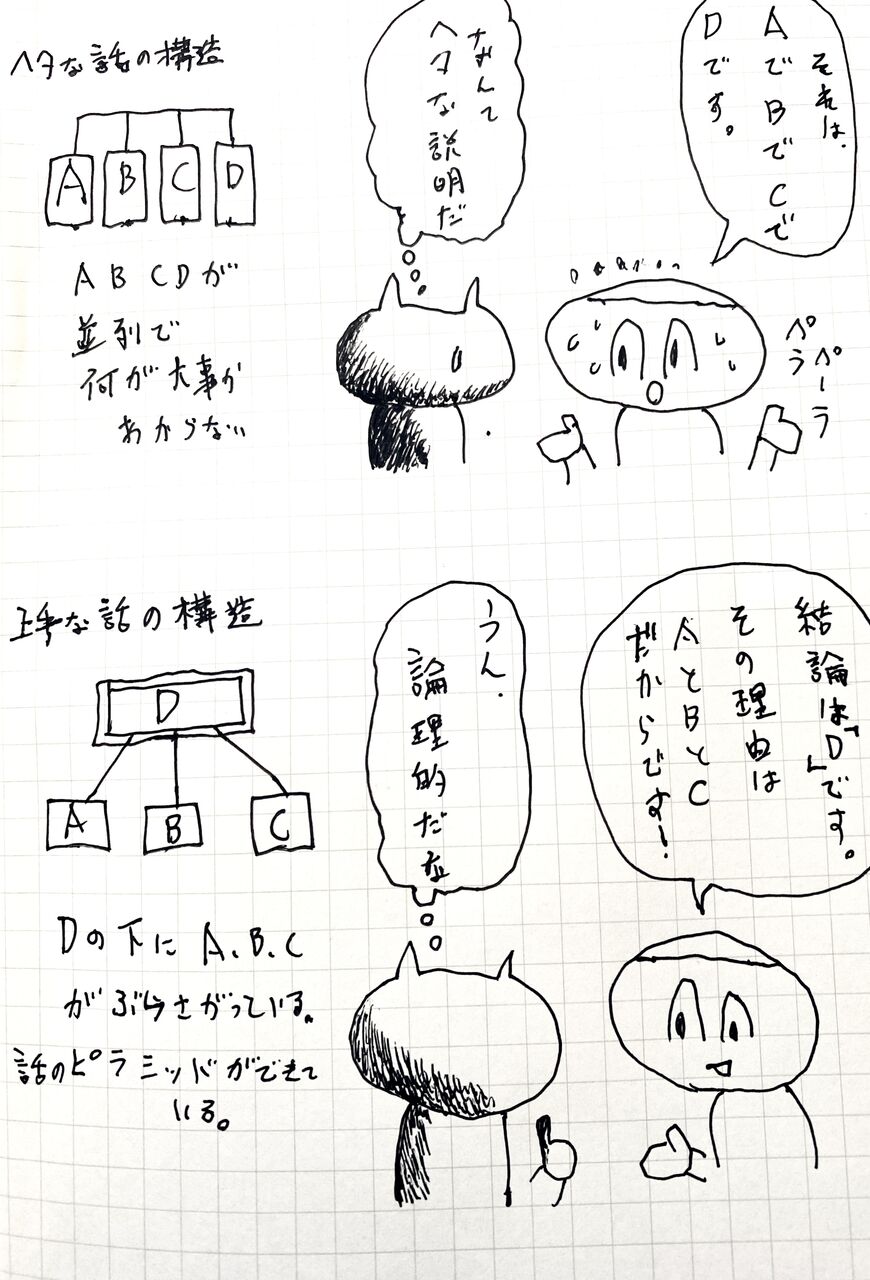 ヘタな話の構造
A
B
C
D
ABCDが
並列で
何が大事か
わからない
なんて
ヘタな説明だ
それは、
AでBでCで
Dです。
ペラ
ペーラ
上手な話の構造
D
A
B
C
Dの下にA、B、C
がぶらさがっている。
話のピラミッドができて
いる。
うん、
論理的だな
結論は「D」です。
その理由は
AとBとC
だからです!